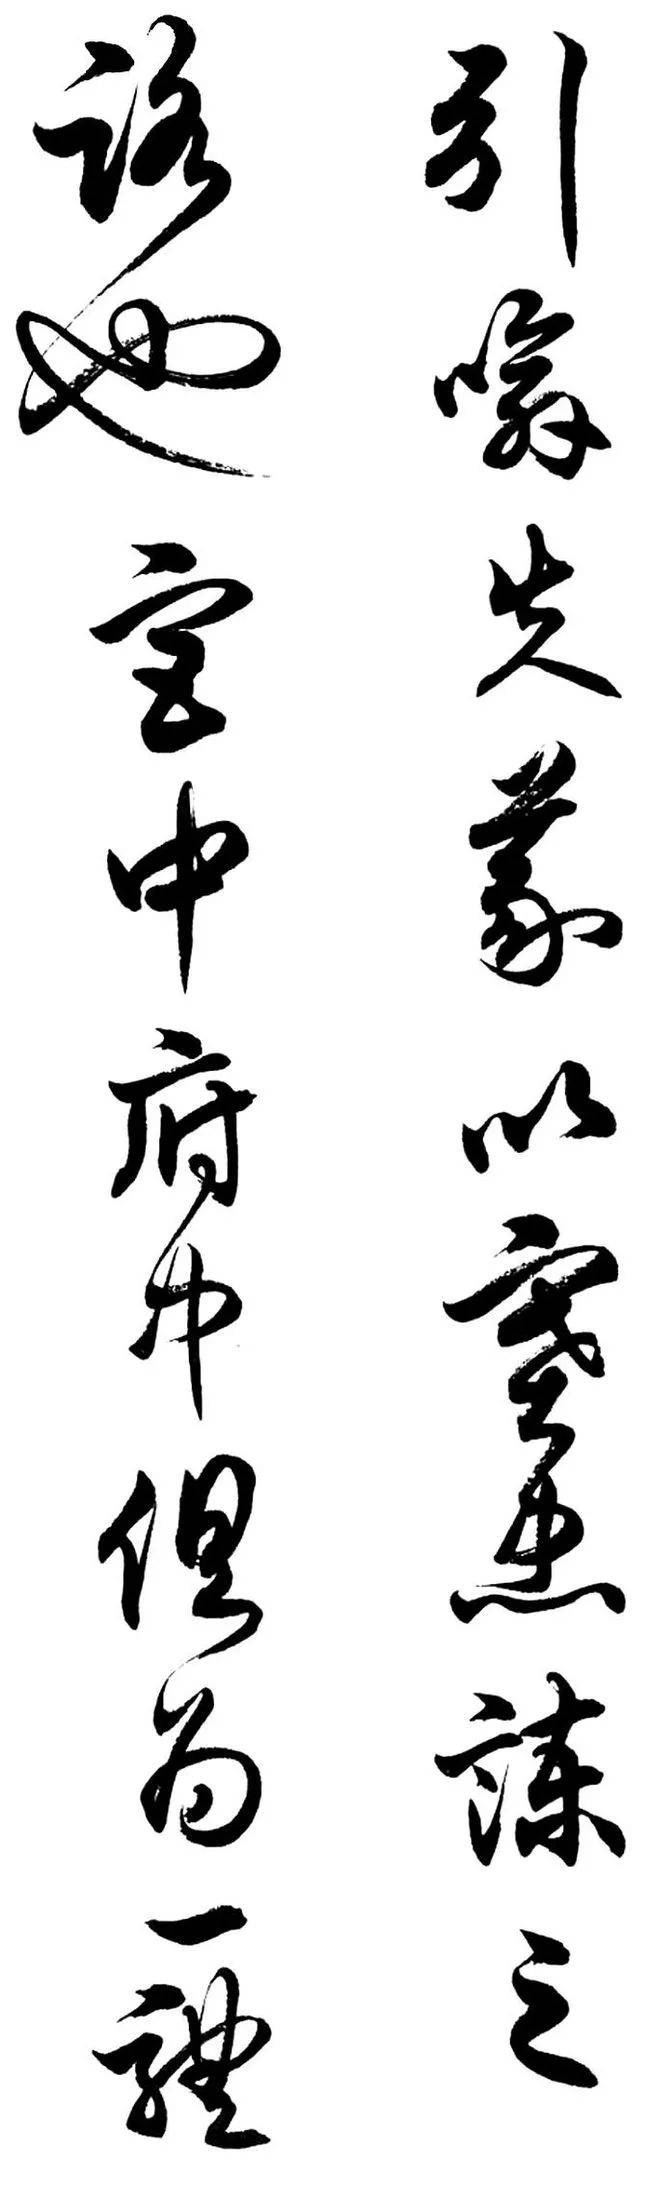 引喻失義以塞忠諫之
路也宮中府中俱為一體